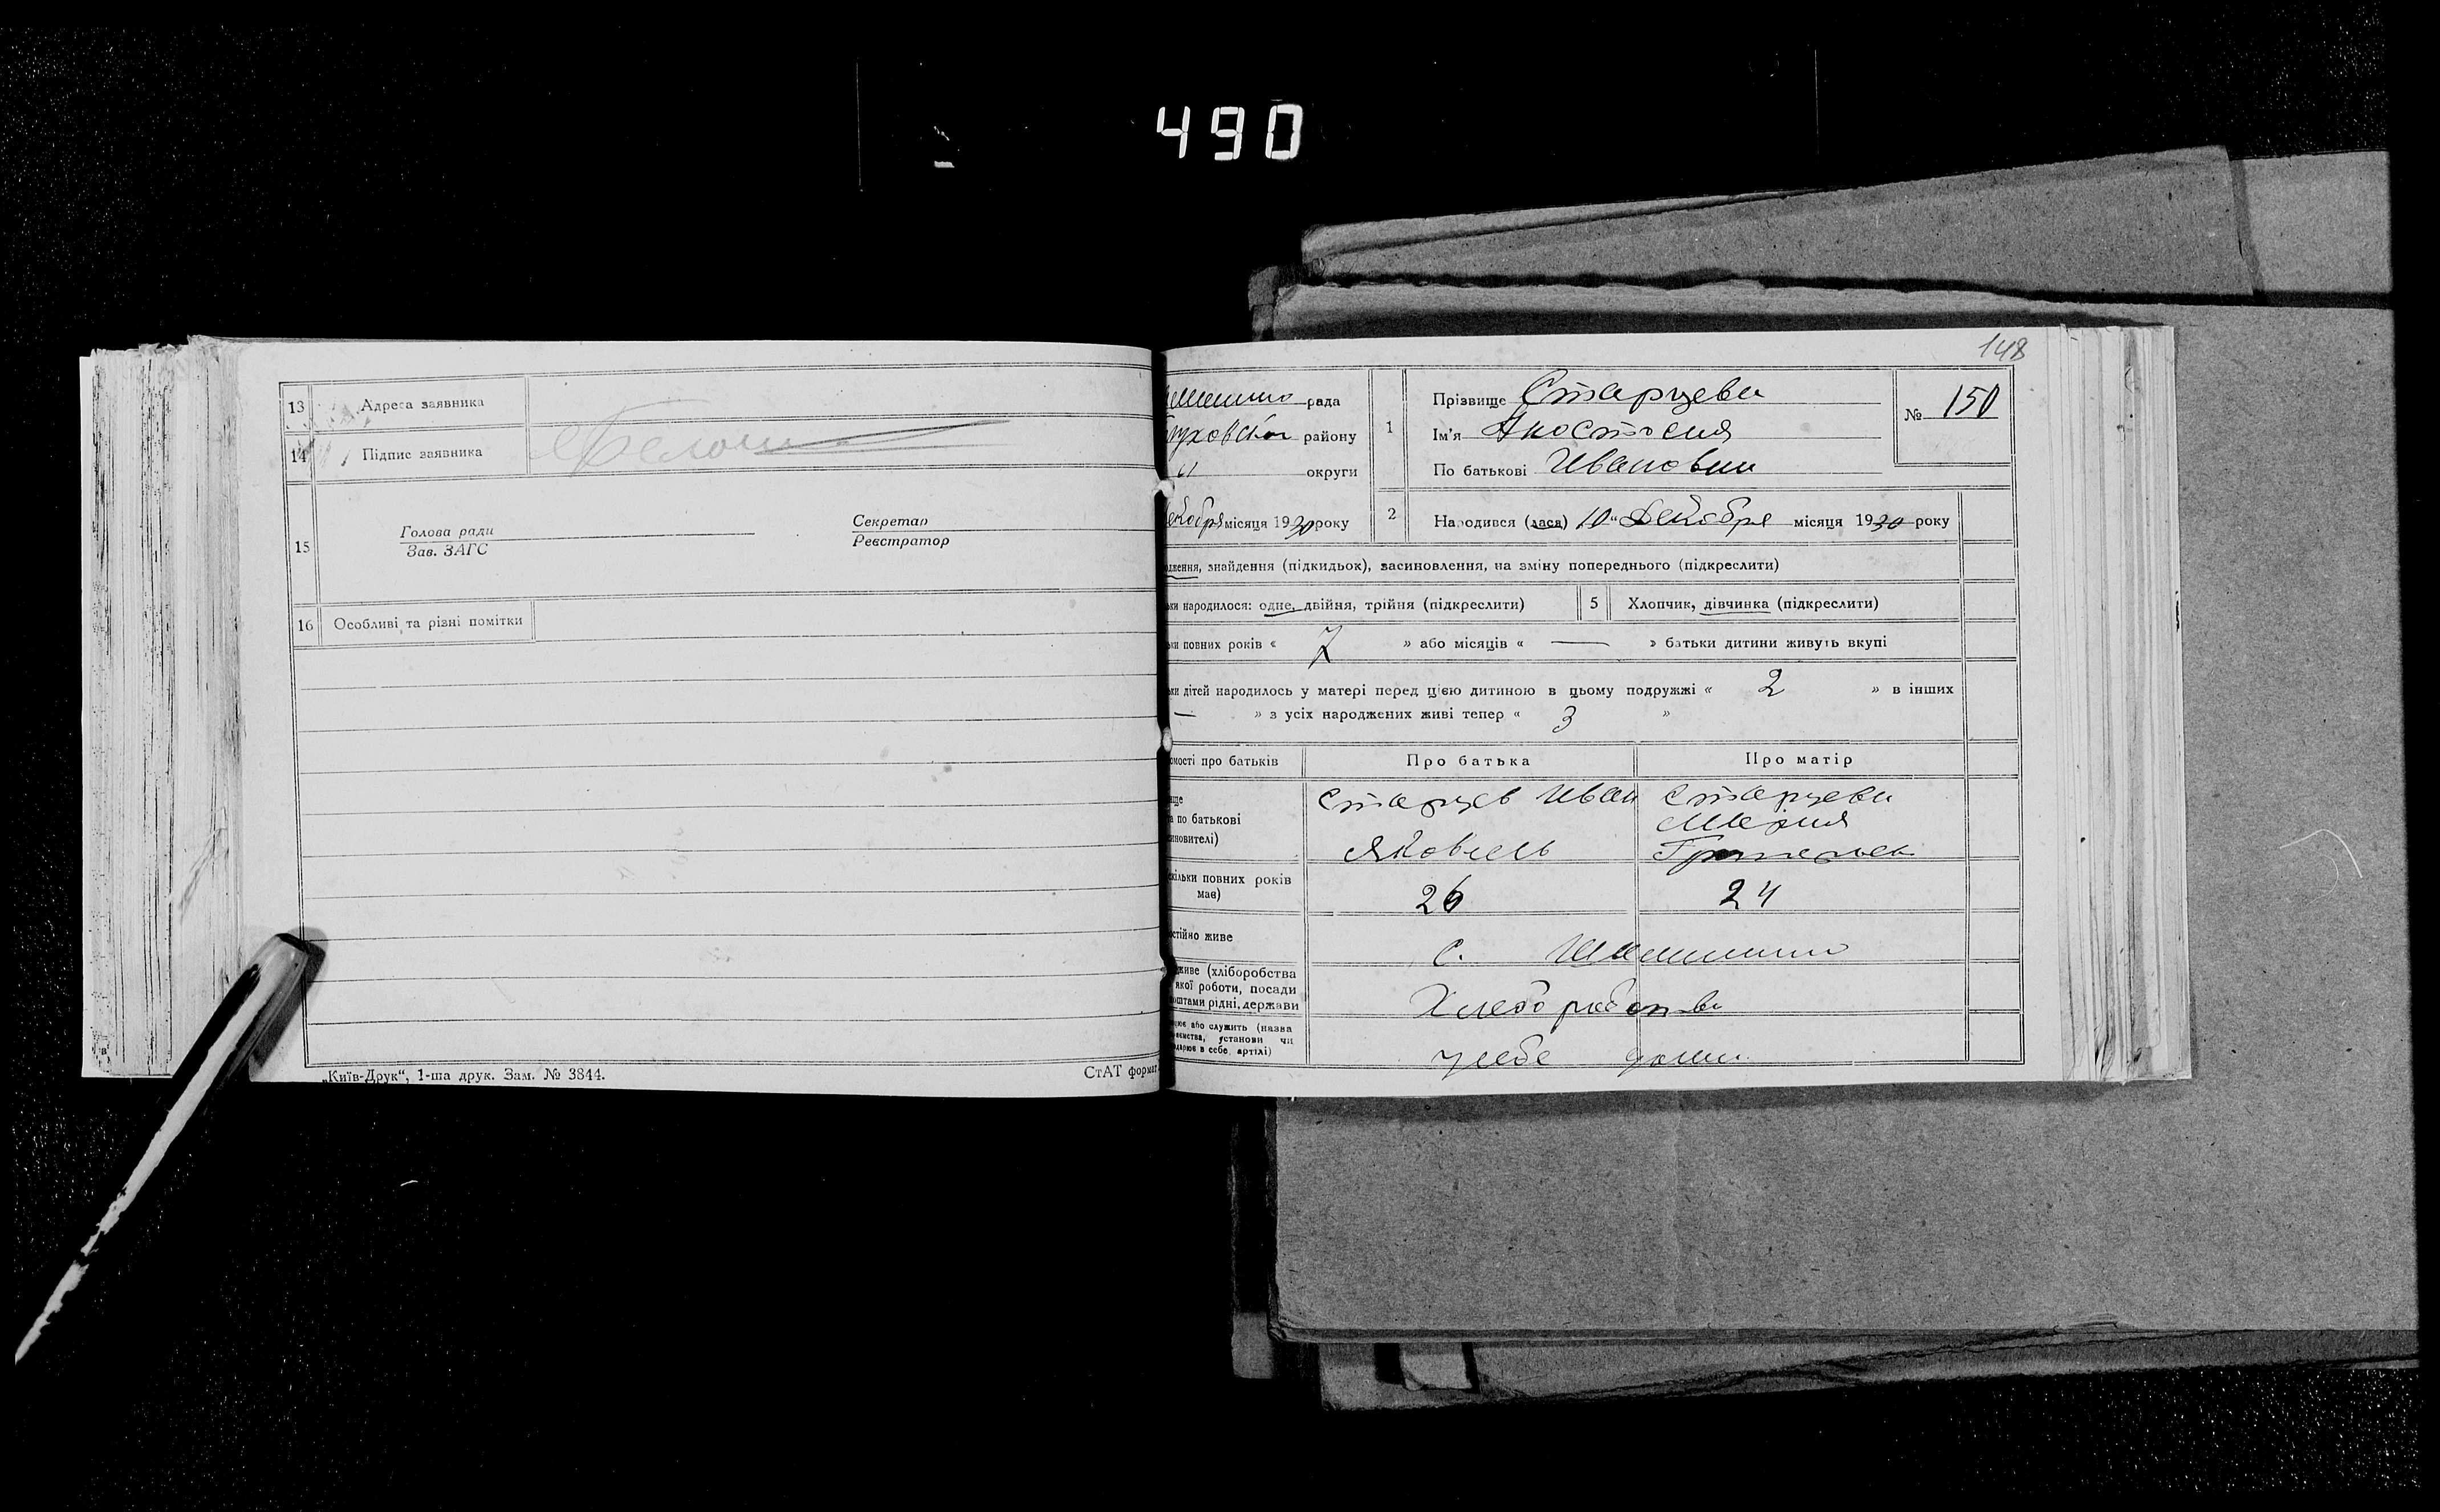 490
13 Адреса заявника
14 Підпис заявника
15 Голова ради
Зав. ЗАГС
Секретар
Реєстратор
16 Особливі та різні помітки
„Київ-Друк“, 1-ша друк. Зам. № 3844.
СтАТ формат
148
рада
району
округи
місяця 1930 року
1 Прізвище Старцева
Ім'я
По батькові Ивановна
№ 150
2 Народився (лася) 10 " Декобря місяця 1930 року
знайдення (підкидьок), засиновлення, на зміну попереднього (підкреслити)
народилося: одне, двійня, трійня (підкреслити)
5 Хлопчик, дівчинка (підкреслити)
повних років « 7 » або місяців « — » батьки дитини живуть вкупі
дітей народилось у матері перед цією дитиною в цьому подружжі « 2 » в інших
— » з усіх народжених живі тепер « 3 »
про батьків
Про батька
Про матір
по батькові
Старцев Иван
Яковлевь
Старцева
Мария
повних років
має)
26
24
живе
с.
(хліборобства
якої роботи, посади
рідні, держави
Хлеборобства
або служить (назва
установи чи
в себе, артілі)
у себе дома